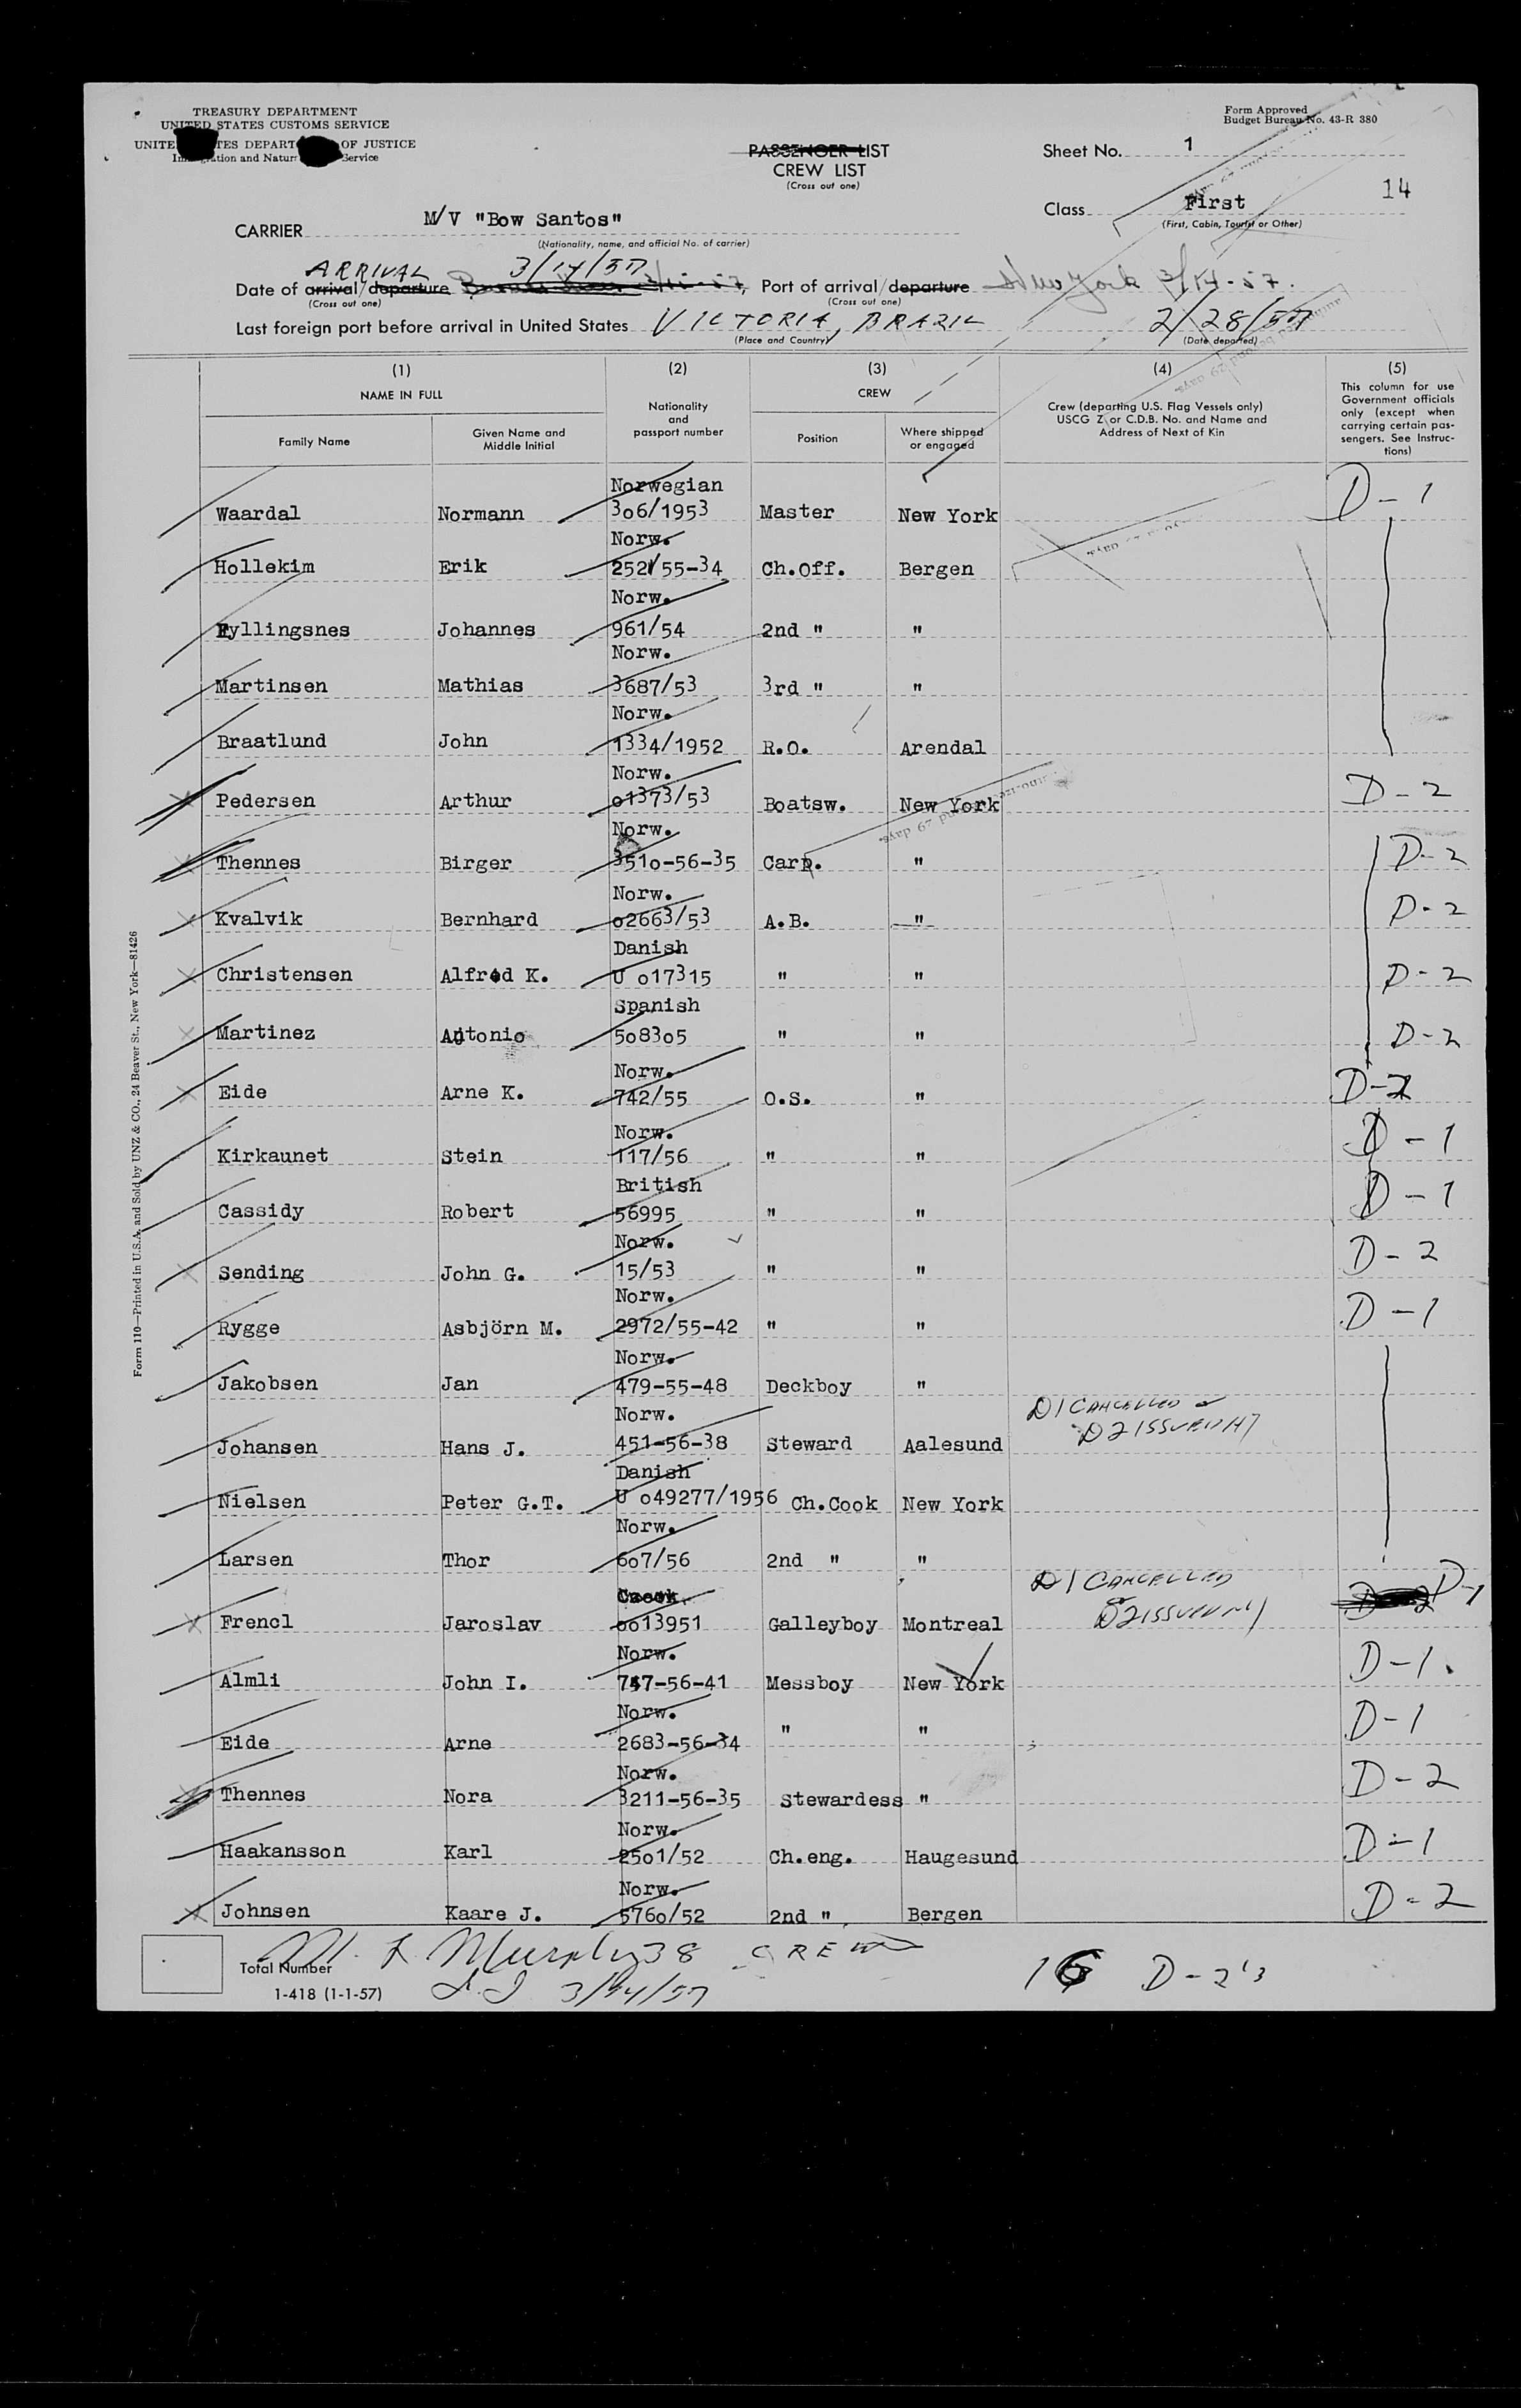 TREASURY DEPARTMENT
UNITED STATES CUSTOMS SERVICE
UNITE TES DEPART OF JUSTICE
Im ation and Natur Service
Form Approved
Budget Bureau No. 43-R 380
PASSENGER LIST
CREW LIST
(Cross out one)
Sheet No. 1
14
Class First
(First, Cabin, Tourist or Other)
CARRIER M/V "Bow Santos"
(Nationality, name, and official No. of carrier)
ARRIVAL 3/14/57
Date of arrival/departure , Port of arrival/departure New York 3/14-57.
(Cross out one) (Cross out one)
Last foreign port before arrival in United States VICTORIA, BRAZIL 2/28/57
(Place and Country) (Date departed)
(1) (2) (3) (4) (5)
NAME IN FULL
Nationality and passport number
CREW
Crew (departing U.S. Flag Vessels only) USCG Z or C.D.B. No. and Name and Address of Next of Kin
This column for use Government officials only (except when carrying certain passengers. See Instructions)
Family Name Given Name and Middle Initial Position Where shipped or engaged
Norwegian
Waardal Normann 306/1953 Master New York D-1
Norw.
Hollekim Erik 2521/55-34 Ch.Off. Bergen
Norw.
Fyllingsnes Johannes 961/54 2nd " "
Norw.
Martinsen Mathias 3687/53 3rd " "
Norw.
Braatlund John 1334/1952 R.O. Arendal
Norw.
Pedersen Arthur o1373/53 Boatsw. New York D-2
Norw.
Thennes Birger 351o-56-35 Carp. " D-2
Norw.
Kvalvik Bernhard o2663/53 A.B. " D-2
Danish
Christensen Alfred K. U o17315 " " D-2
Spanish
Martinez Antonio 5o83o5 " " D-2
Norw.
Eide Arne K. 742/55 O.S. " D-2
Norw.
Kirkaunet Stein 117/56 " " D-1
British
Cassidy Robert 56995 " " D-1
Norw.
Sending John G. 15/53 " " D-2
Norw.
Rygge Asbjörn M. 2972/55-42 " " D-1
Norw.
Jakobsen Jan 479-55-48 Deckboy "
Norw. D1 CANCELLED
Johansen Hans J. 451-56-38 Steward Aalesund D2 ISSUED
Danish
Nielsen Peter G.T. U o49277/1956 Ch.Cook New York
Norw.
Larsen Thor 6o7/56 2nd " "
D1 CANCELLED
Frencl Jaroslav oo13951 Galleyboy Montreal D2 ISSUED D-1
Norw.
Almli John I. 747-56-41 Messboy New York D-1
Norw.
Eide Arne 2683-56-34 " " D-1
Norw.
Thennes Nora 3211-56-35 Stewardess " D-2
Norw.
Haakansson Karl 25o1/52 Ch.eng. Haugesund D-1
Norw.
Johnsen Kaare J. 576o/52 2nd " Bergen D-2
Murphy 38 CREW
Total Number
16 D-2's
I-418 (1-1-57) 3/14/57
Form 110—Printed in U.S.A. and Sold by UNZ & CO., 24 Beaver St., New York—81426